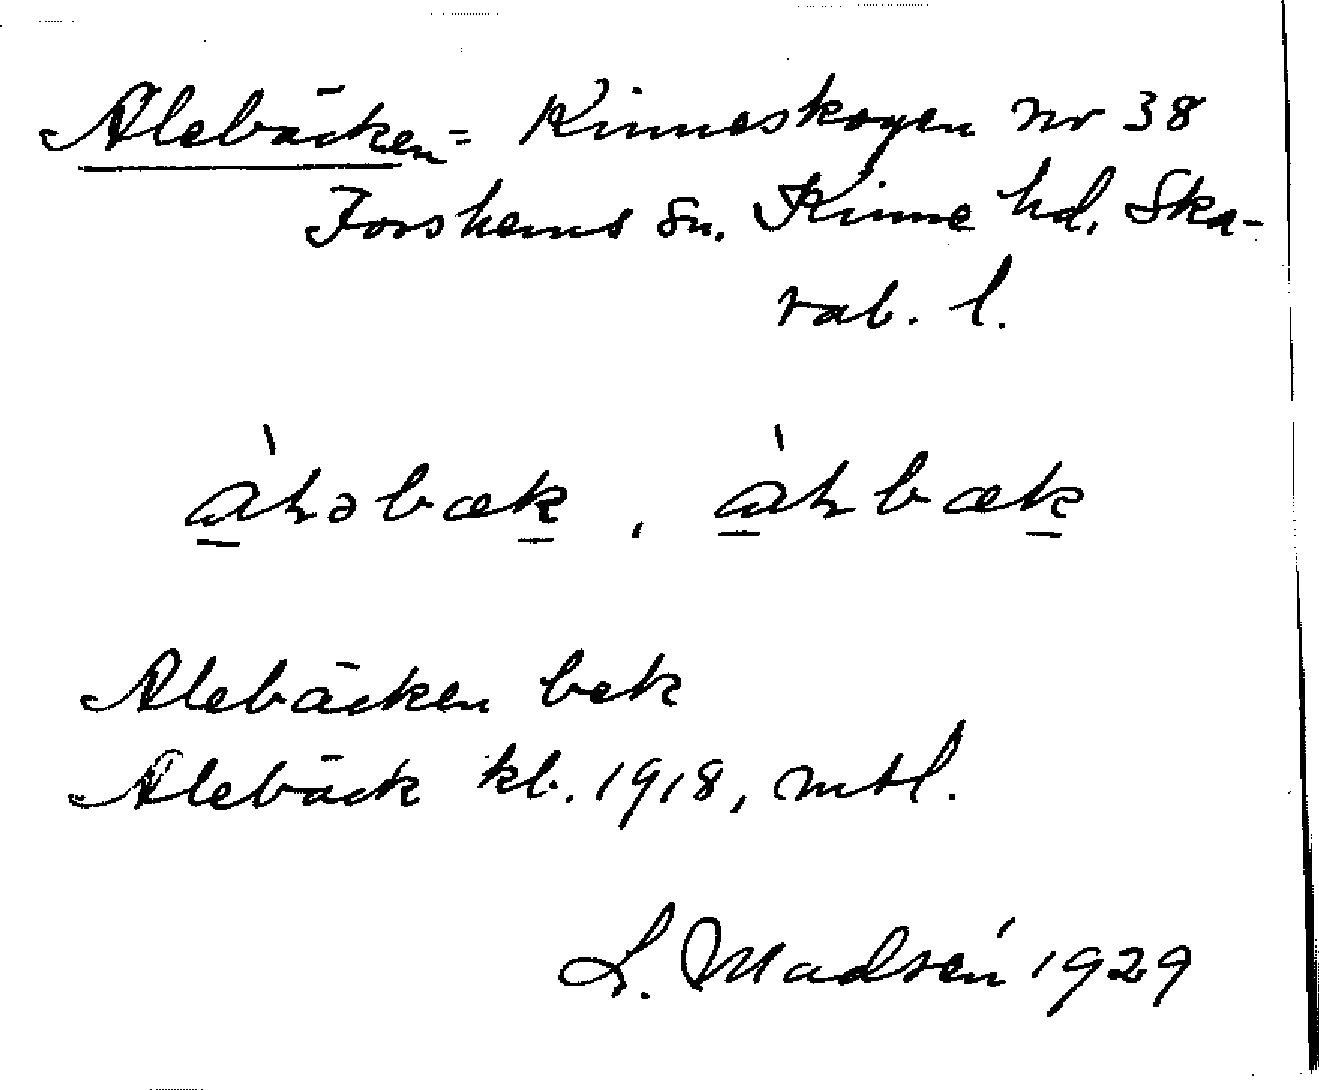 Alebäcken = Kinneskogen nr 38
Forshems sn. Kinne hd, Ska-
rab. l.
àləbæk, àlbæk
Alebäcken bek
Alebäck kb. 1918, mtl.
L. Madsén 1929